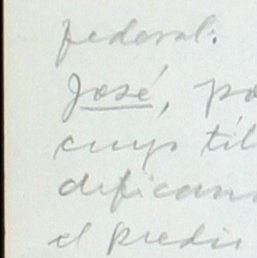 federal.
José, po
cuyo tít
dificand
el predio